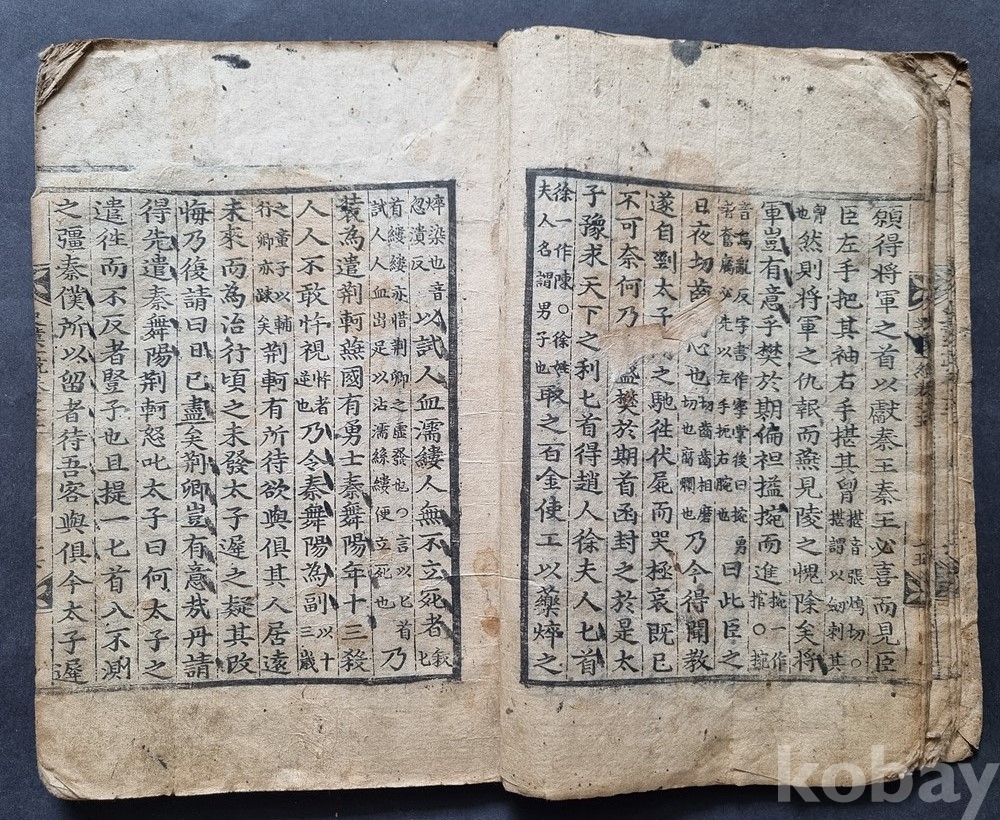 願得將軍之首以獻秦王秦王必喜而見臣
臣左手把其袖右手揕其胷揕音張鴆切○揕謂以劍刺其
胷也然則將軍之仇報而燕見陵之愧除矣將
軍豈有意乎樊於期偏袒搤捥而進捥一作捾○捥
音烏亂反字書作掔掌後曰捥勇者奮厲必先以左手扼右腕也曰此臣之
日夜切齒心也切齒齒相磨切也腐爛也乃今得聞教
遂自剄太子之馳往伏屍而哭極哀既已
不可奈何乃盛樊於期首函封之於是太
子豫求天下之利匕首得趙人徐夫人匕首
徐一作陳○徐姓夫人名謂男子也取之百金使工以藥焠之
焠染也音忽潰反以試人血濡縷人無不立死者敘匕
首縷縷亦惜荆卿之虛發也○言以匕首試人人血出足以沾濡絲縷便立死也乃
裝為遣荆軻燕國有勇士秦舞陽年十三殺
人人不敢忤視忤者逆也乃令秦舞陽為副以十三歲
之童子以輔行卿亦疎矣荆軻有所待欲與俱其人居遠
未來而為治行頃之未發太子遲之疑其改
悔乃復請曰日已盡矣荆卿豈有意哉丹請
得先遣秦舞陽荆軻怒叱太子曰何太子之
遣往而不反者豎子也且提一匕首入不測
之彊秦僕所以留者待吾客與俱今太子遲
kobay